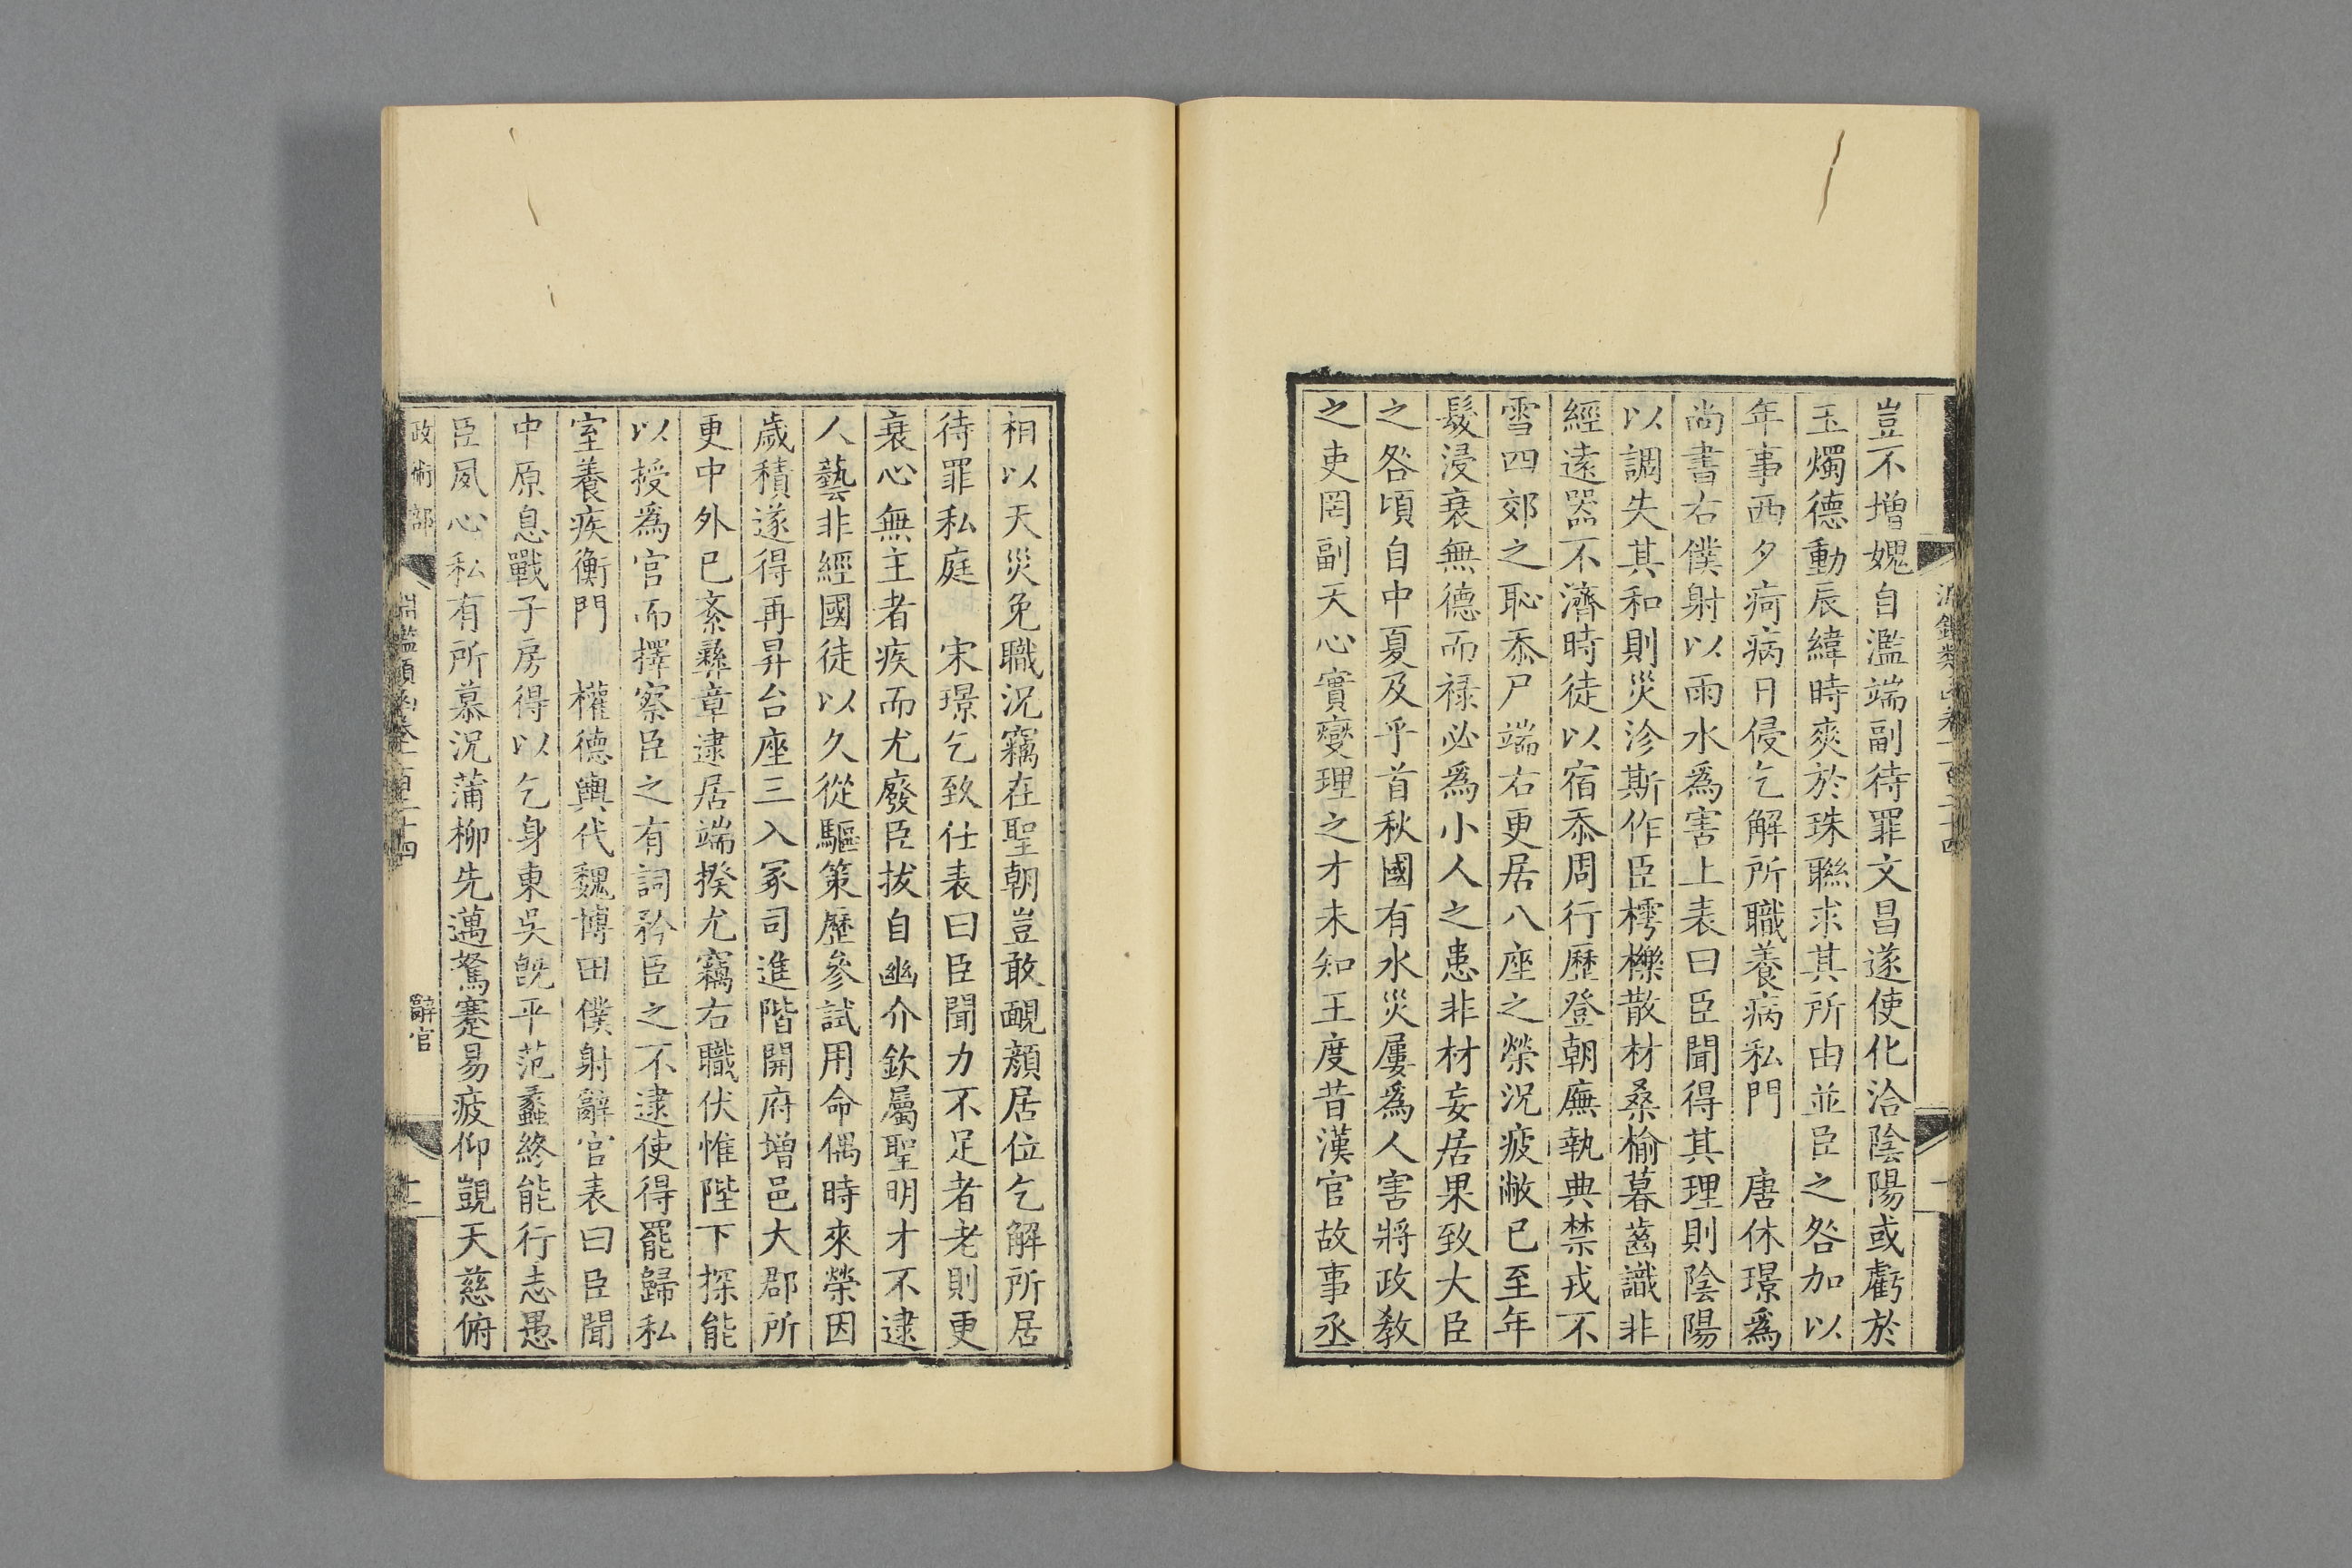 豈不増媿自濫端副待罪文昌遂使化洽陰陽或虧於
玉燭德動辰緯時爽於珠聯求其所由並臣之咎加以
年事西夕痾病日侵乞解所職養病私門　唐休璟爲
尚書右僕射以雨水爲害上表曰臣聞得其理則陰陽
以調失其和則災沴斯作臣樗櫟散材桑榆暮齒識非
經遠器不濟時徒以宿忝周行歷登朝廡執典禁戎不
雪四郊之恥忝尸端右更居八座之榮況疲敝已至年
髮浸衰無德而禄必爲小人之患非材妄居果致大臣
之咎頃自中夏及乎首秋國有水災屢爲人害將政教
之吏罔副天心實燮理之才未知王度昔漢官故事丞
相以天災免職況竊在聖朝豈敢靦顔居位乞解所居
待罪私庭　宋璟乞致仕表曰臣聞力不足者老則更
衰心無主者疾而尤廢臣拔自幽介欽屬聖明才不逮
人藝非經國徒以久從驅策歷參試用命偶時來榮因
歲積遂得再昇台座三入冢司進階開府增邑大郡所
更中外已紊彝章逮居端揆尤竊右職伏惟陛下探能
以授爲官而擇察臣之有詞矜臣之不逮使得罷歸私
室養疾衡門　權德輿代魏博田僕射辭官表曰臣聞
中原息戰子房得以乞身東吳旣平范蠡終能行志愚
臣夙心私有所慕況蒲柳先邁駑蹇易疲仰覬天慈俯
政術部
淵鑑類函卷一百二十四
辭官